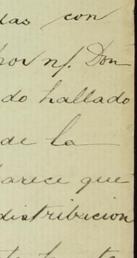 das con
por nf. Don
do hallado
de la
parece que
distribucion